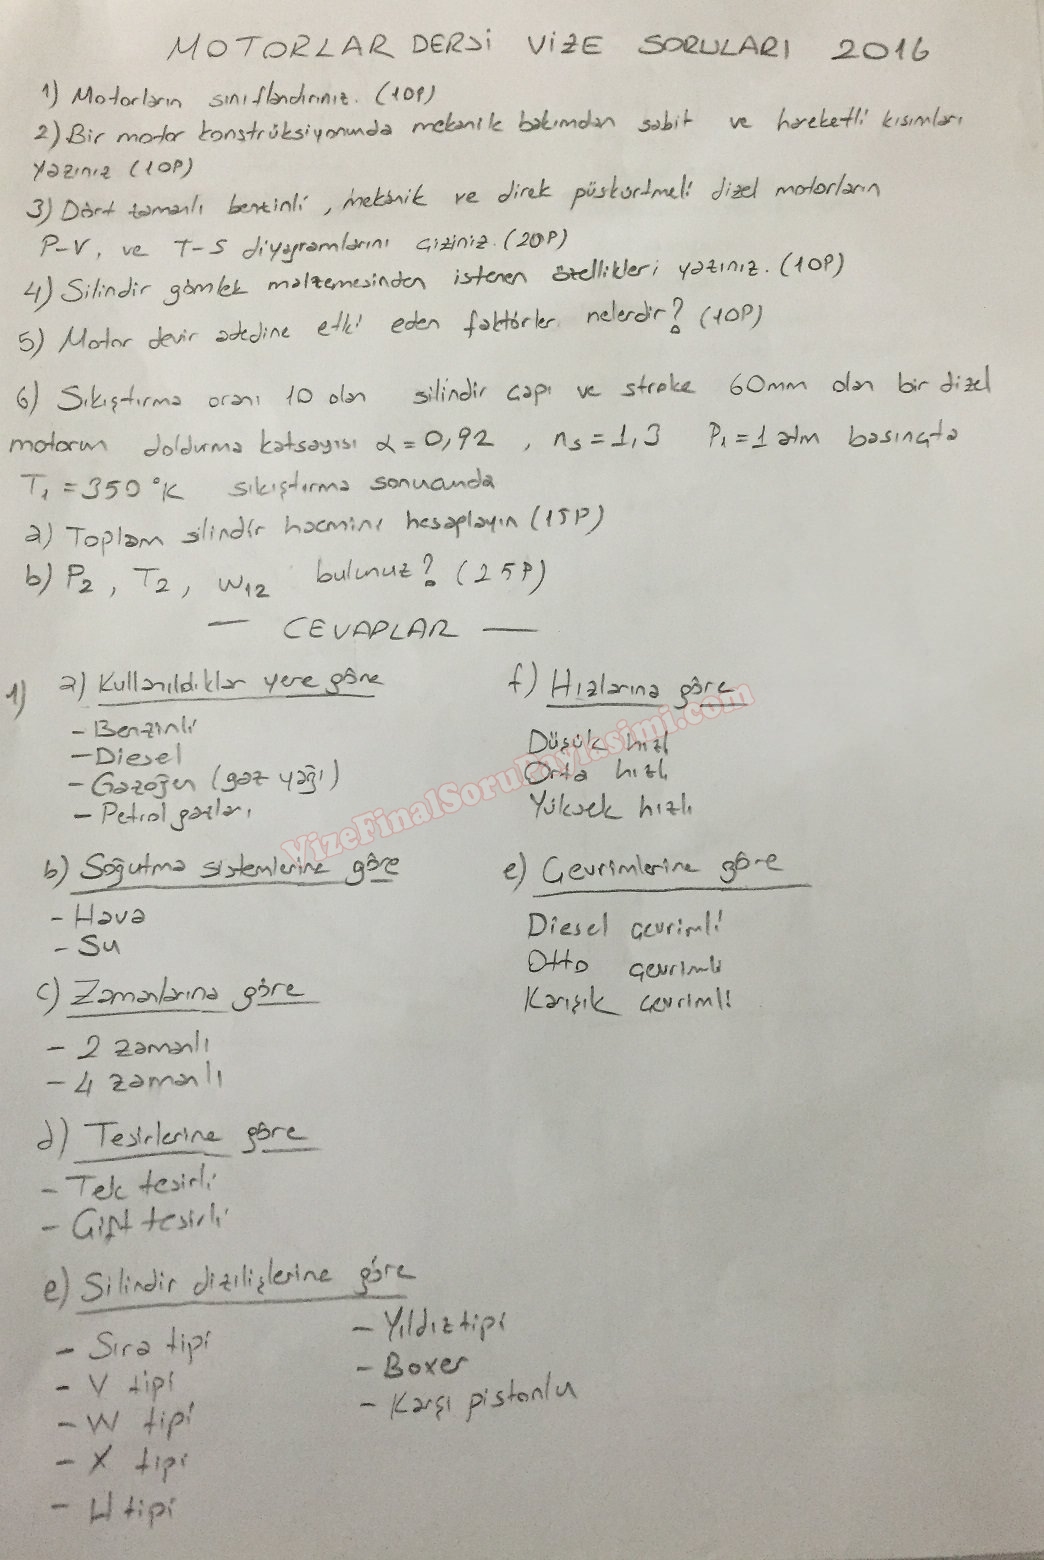 MOTORLAR DERSİ VİZE SORULARI 2016
1) Motorların sınıflandırınız. (10P)
2) Bir motor konstrüksiyonunda mekanik bakımdan sabit ve hareketli kısımları
yazınız (10P)
3) Dört zamanlı benzinli, mekanik ve direk püskürtmeli dizel motorların
P-V, ve T-S diyagramlarını çiziniz. (20P)
4) Silindir gömlek malzemesinden istenen özellikleri yazınız. (10P)
5) Motor devir adedine etki eden faktörler nelerdir? (10P)
6) Sıkıştırma oranı 10 olan silindir çapı ve stroke 60mm olan bir dizel
motorun doldurma katsayısı α = 0,92, ns = 1,3 P1 = 1 atm basınçta
T1 = 350 °K sıkıştırma sonucunda
a) Toplam silindir hacmini hesaplayın (15P)
b) P2, T2, W12 bulunuz? (25P)
— CEVAPLAR —
1) a) Kullanıldıklar yere göre
- Benzinli
- Diesel
- Gazoğen (gaz yağı)
- Petrol gazları
b) Soğutma sistemlerine göre
- Hava
- Su
c) Zamanlarına göre
- 2 zamanlı
- 4 zamanlı
d) Tesirlerine göre
- Tek tesirli
- Çift tesirli
e) Silindir dizilişlerine göre
- Sıra tipi
- V tipi
- W tipi
- X tipi
- H tipi
- Yıldız tipi
- Boxer
- Karşı pistonlu
f) Hızlarına göre
Düşük hızlı
Orta hızlı
Yüksek hızlı
e) Çevrimlerine göre
Diesel çevrimli
Otto çevrimli
Karışık çevrimli
VizeFinalSoruPaylasimi.com